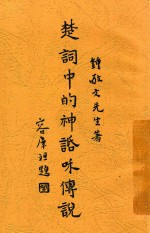 鍾敬文先生著
楚詞中的神話和傳說
容庚題